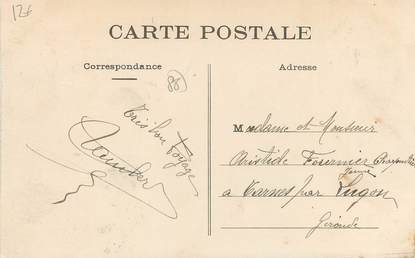 12€
CARTE POSTALE
Correspondance
Adresse
88
Très bon Voyage
Madame et Monsieur
Aristide Fournier
jeune
a Tarnes par Lugon
Gironde